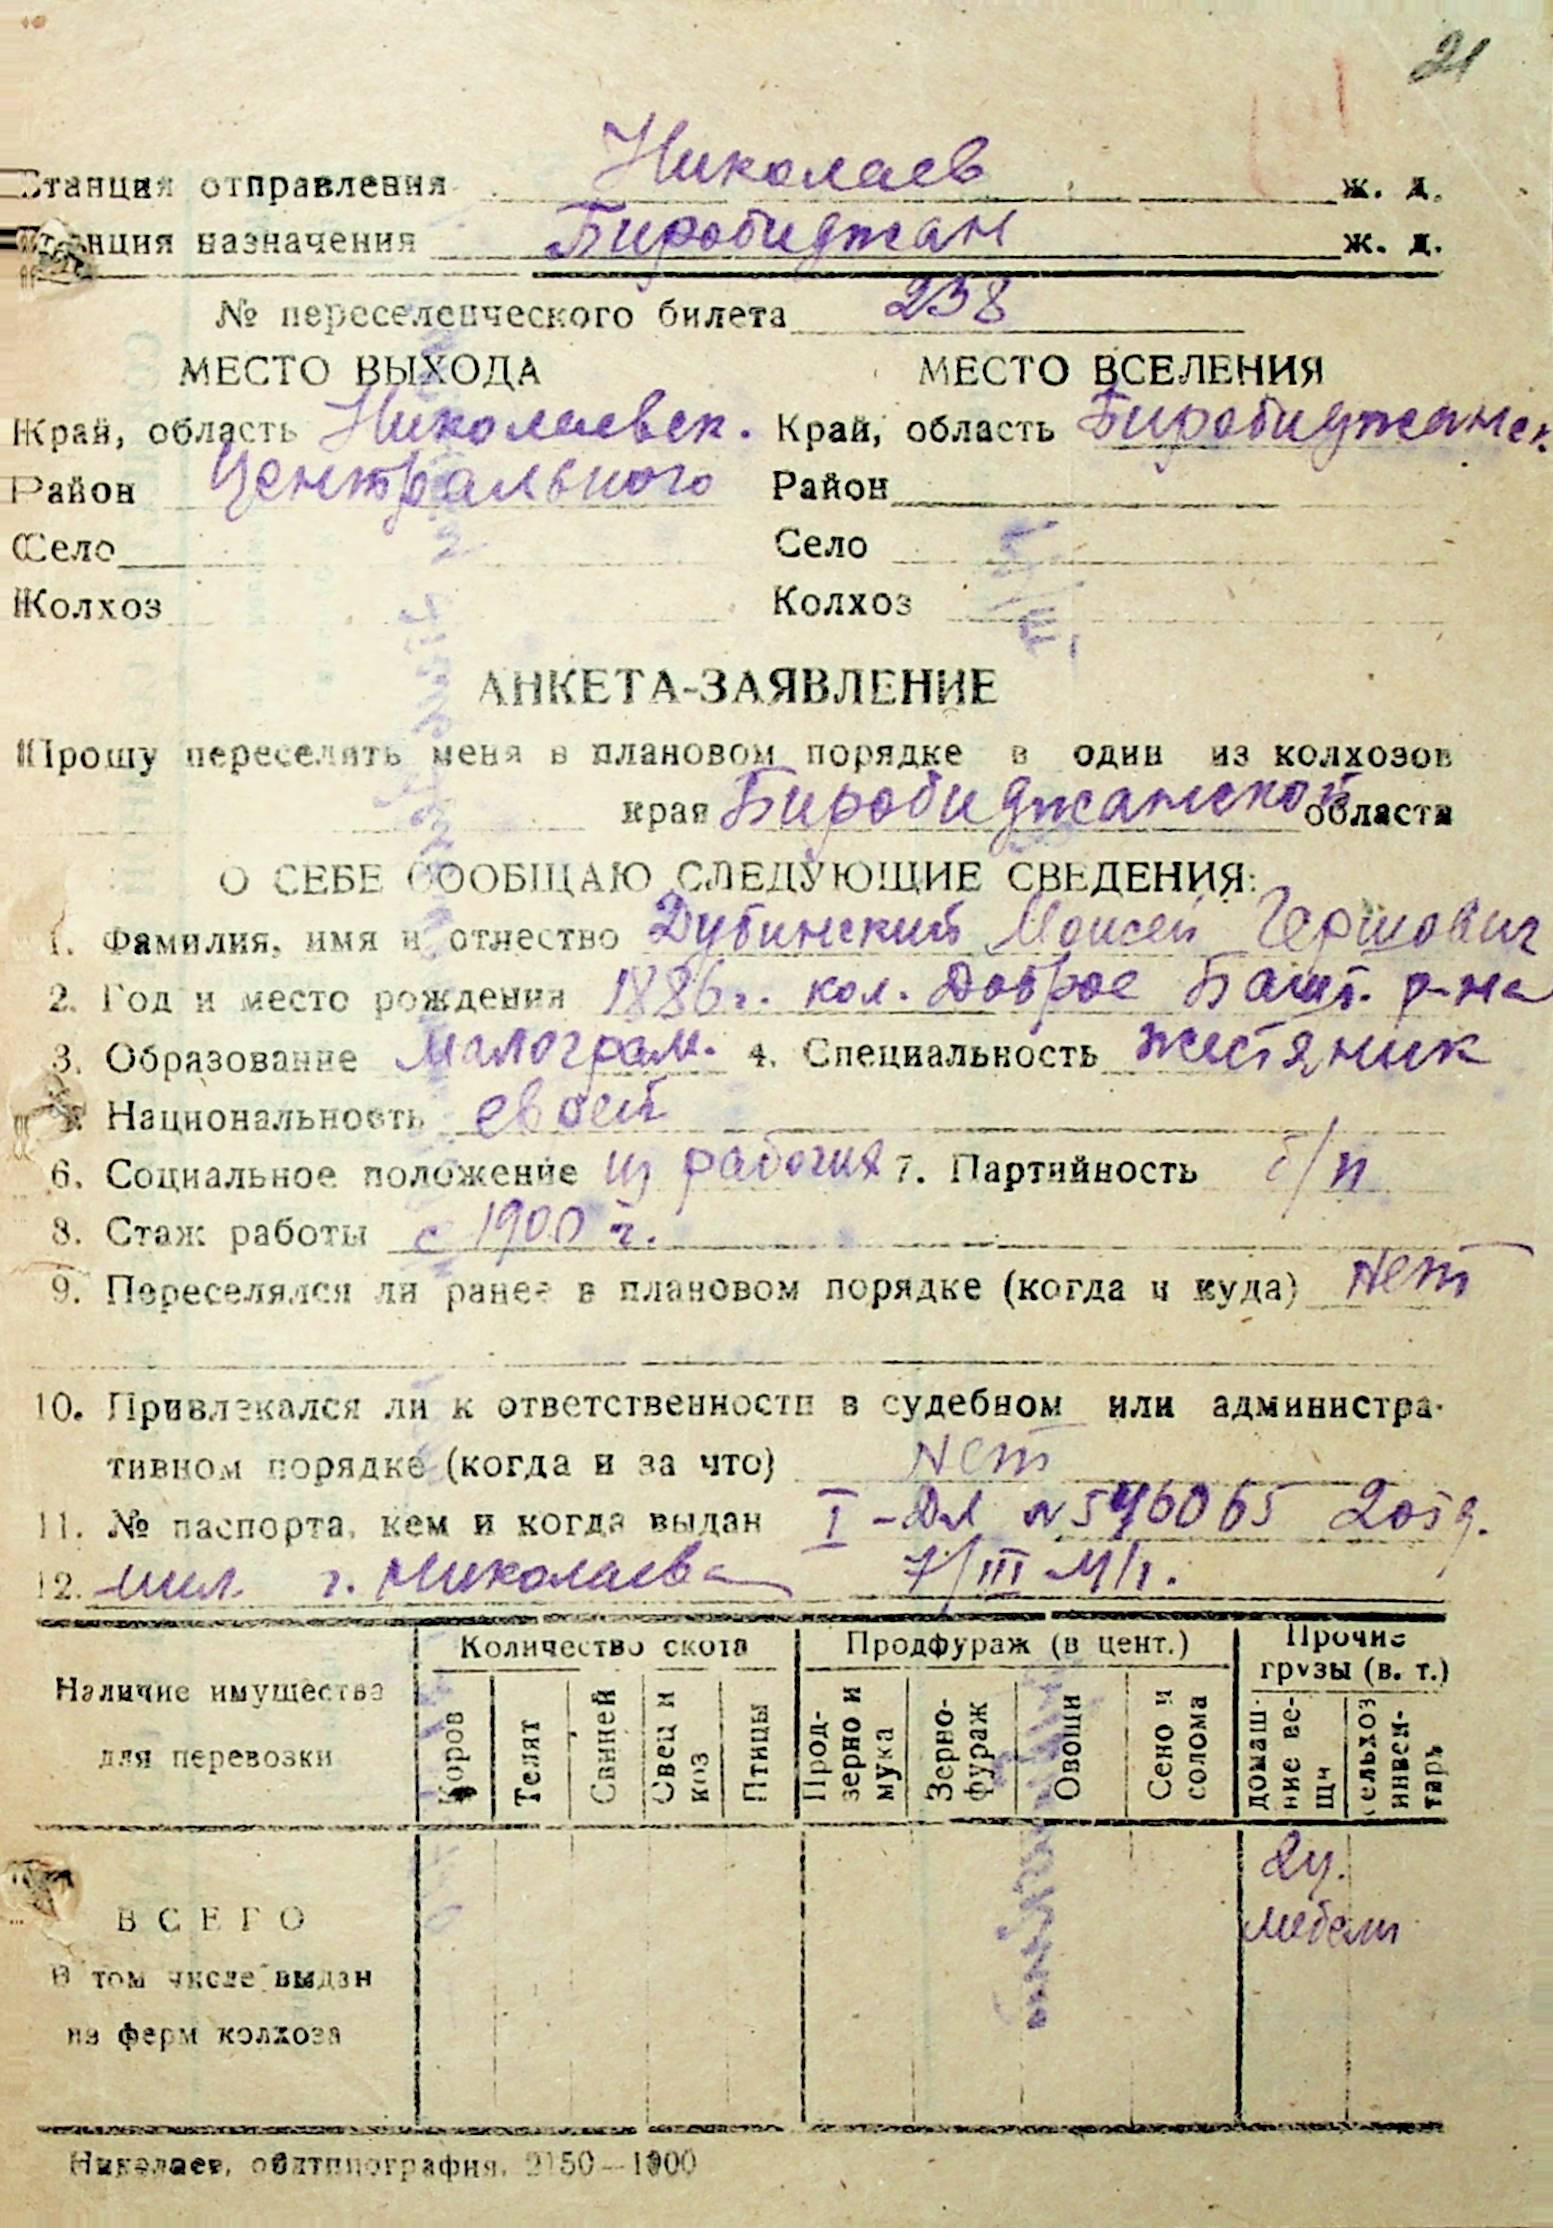 21
Станция отправления Николаев ж. д.
Станция назначения Биробиджан ж. д.
№ переселенческого билета 238
МЕСТО ВЫХОДА МЕСТО ВСЕЛЕНИЯ
Край, область Николаевск. Край, область Биробиджанск
Район Центрального Район
Село Село
Колхоз Колхоз
АНКЕТА-ЗАЯВЛЕНИЕ
Прошу переселить меня в плановом порядке в один из колхозов
края Биробиджанской области
О СЕБЕ СООБЩАЮ СЛЕДУЮЩИЕ СВЕДЕНИЯ:
1. Фамилия, имя и отчество Дубинский Моисей Гершович
2. Год и место рождения 1886 г. кол. Доброе Башт. р-на
3. Образование малограм. 4. Специальность жестяник
Национальность еврей
6. Социальное положение из рабочих 7. Партийность б/п
8. Стаж работы с 1900 г.
9. Переселялся ли ранее в плановом порядке (когда и куда) нет
10. Привлекался ли к ответственности в судебном или администра-
тивном порядке (когда и за что) нет
11. № паспорта, кем и когда выдан I-ДЛ № 546065 2 отд.
12. мил. г. Николаева 7/III
Наличие имущества для перевозки Количество скота Продфураж (в цент.) Прочие грузы (в. т.)
Коров Телят Свиней Овец и коз Птицы Прод-зерно и мука Зерно-фураж Овощи Сено и солома домаш-ние ве-щи сельхоз инвен-тарь
ВСЕГО
мебели
В том числе выдан
из ферм колхоза
Николаев, облтипография, 2150—1000